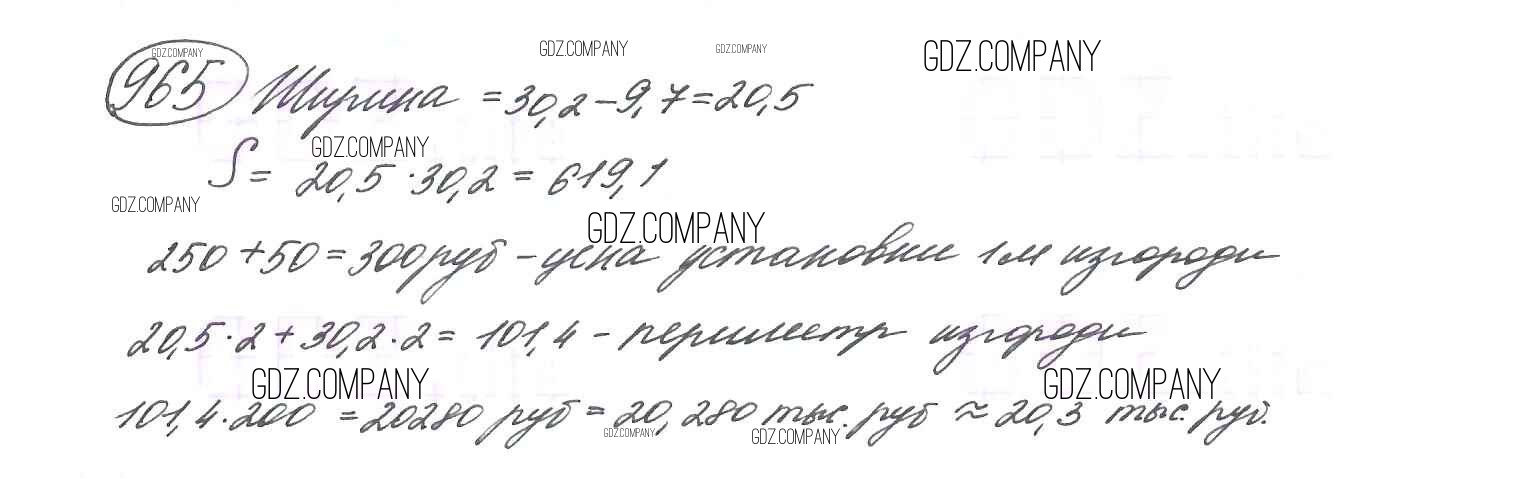 GDZ.COMPANY GDZ.COMPANY GDZ.COMPANY GDZ.COMPANY
965 Ширина = 30,2 - 9,7 = 20,5
GDZ.COMPANY
S = 20,5 · 30,2 = 619,1
GDZ.COMPANY GDZ.COMPANY
250 + 50 = 300 руб - цена установки 1 м изгороди
20,5 · 2 + 30,2 · 2 = 101,4 - периметр изгороди
GDZ.COMPANY GDZ.COMPANY
101,4 · 200 = 20280 руб = 20,280 тыс. руб ≈ 20,3 тыс. руб.
GDZ.COMPANY GDZ.COMPANY